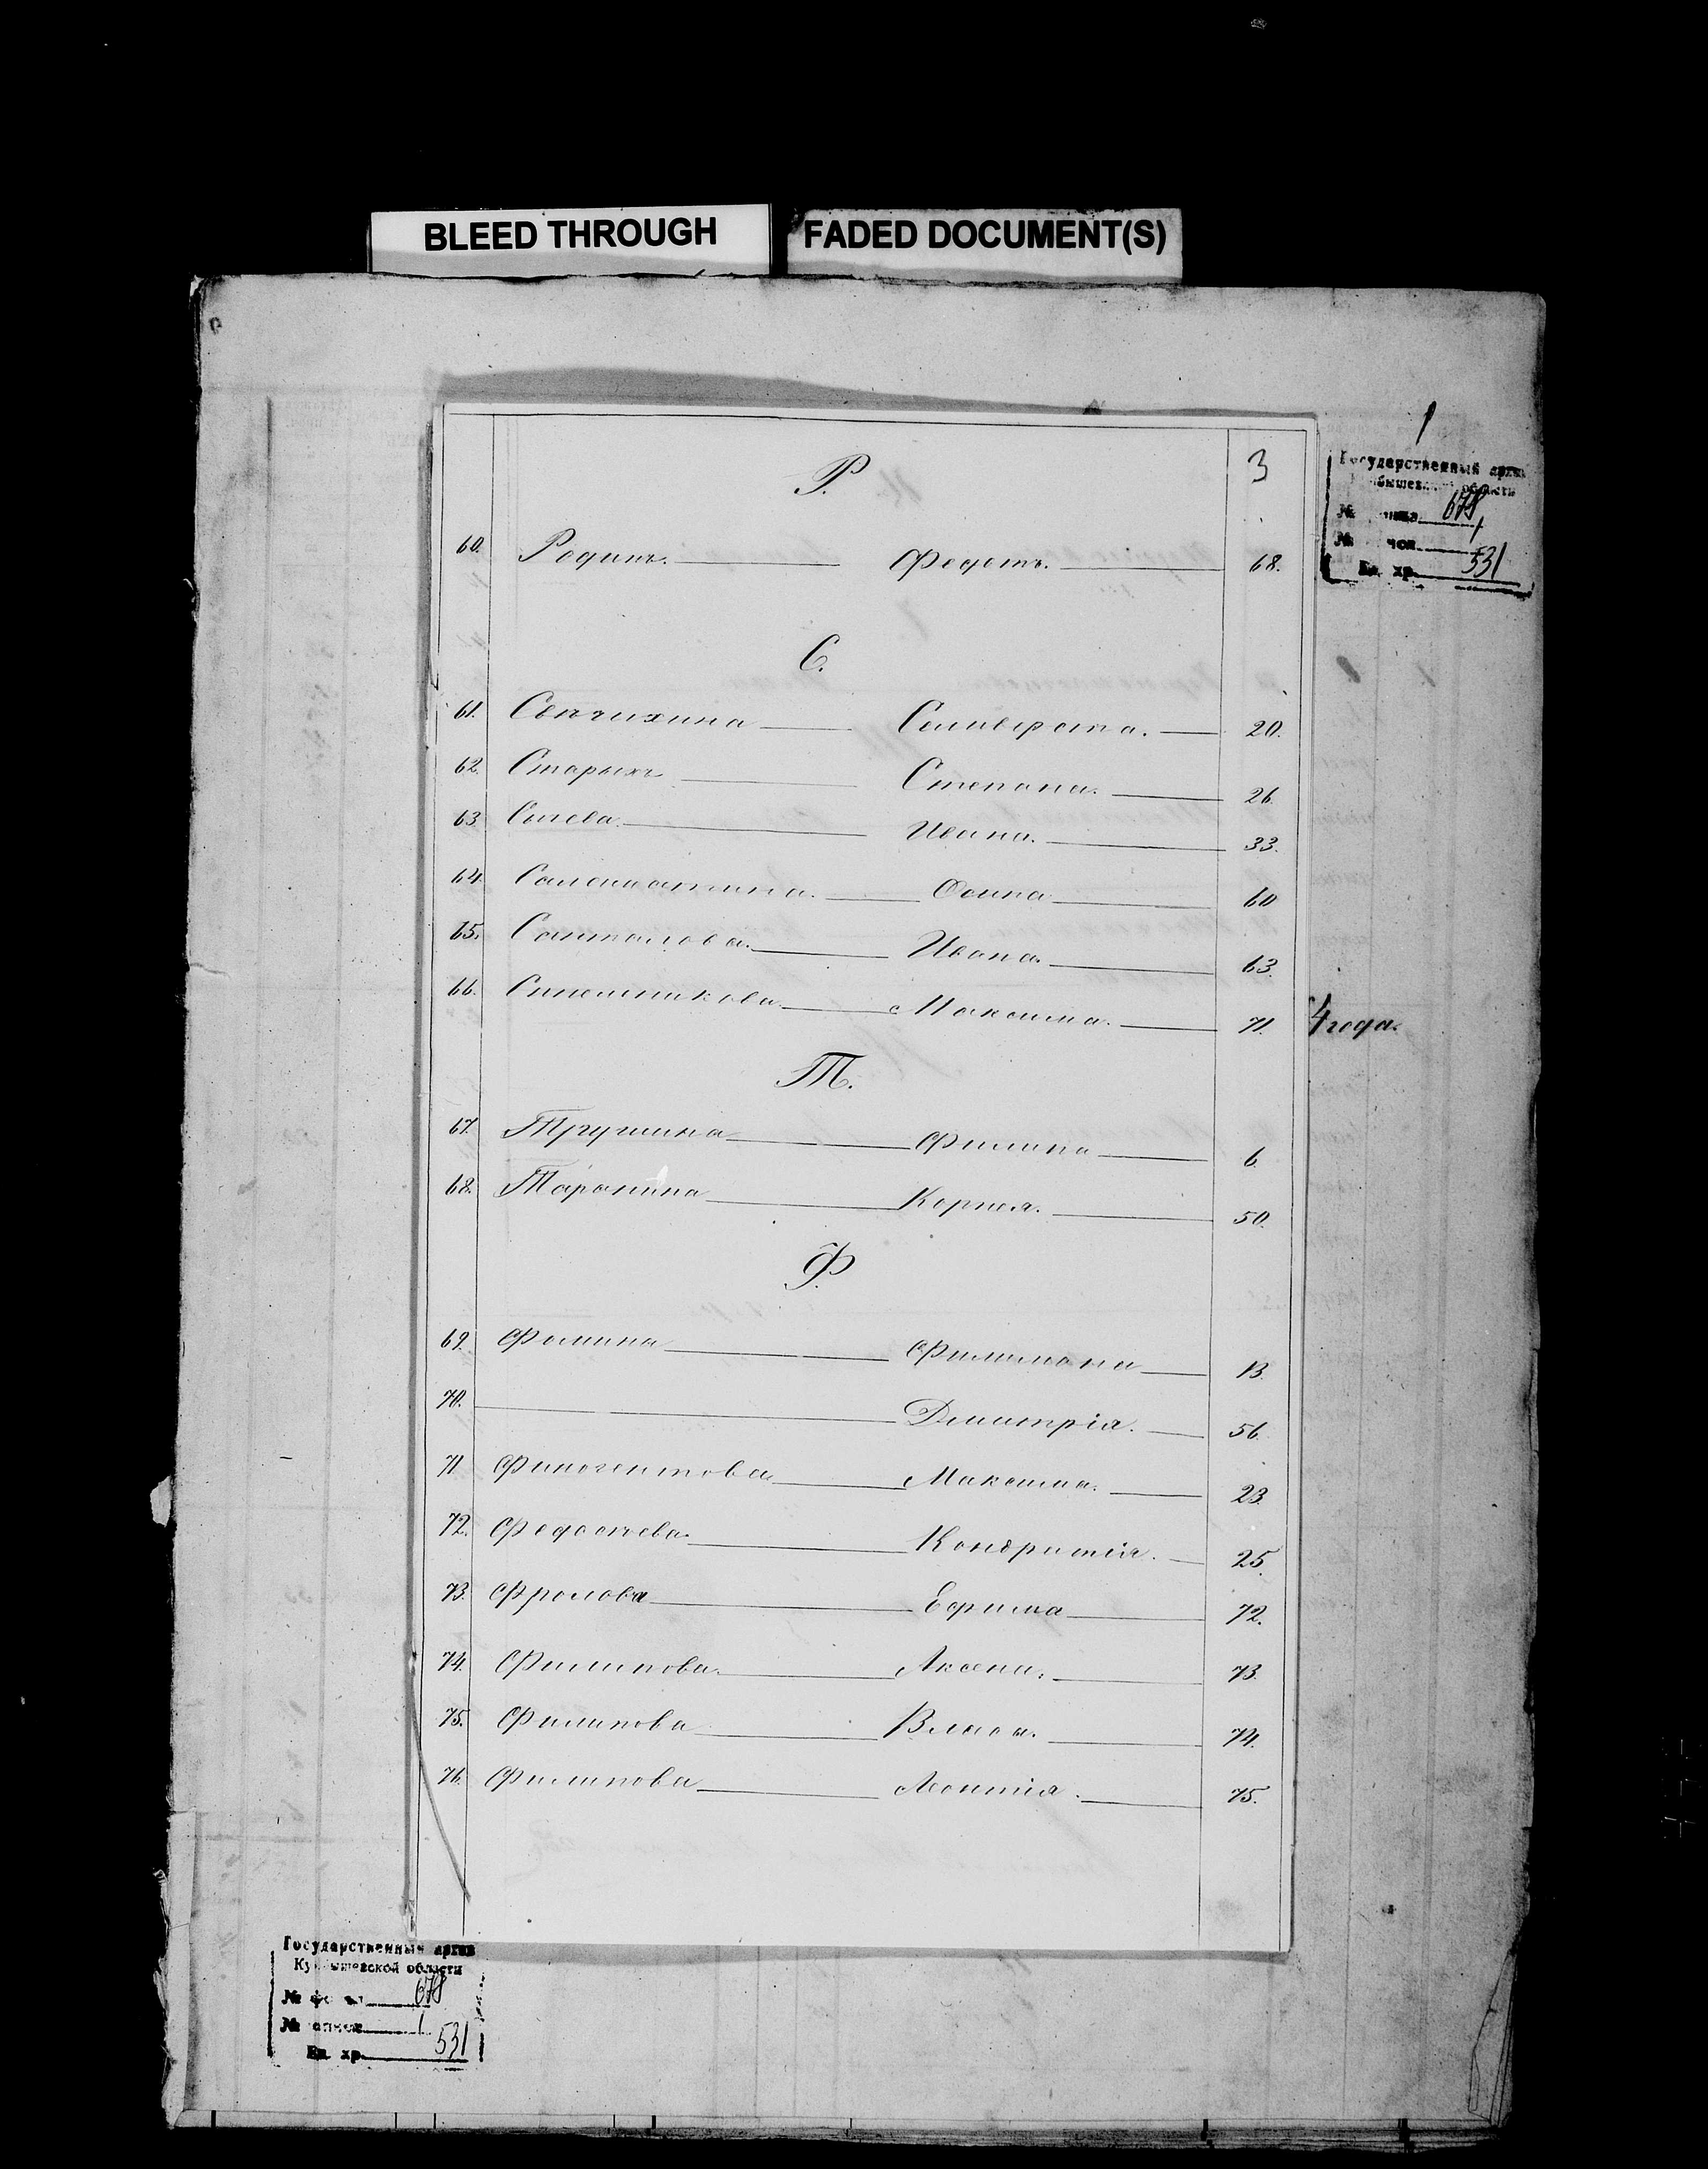 BLEED THROUGH
FADED DOCUMENT(S)
1
Государственный архив
области
678
1
Ед. хр. 531
3
Р.
60. Родинъ. Федотъ. 68.
С.
61. Свѣчихина Селиверста. 20.
62. Старыхъ Степана. 26.
63. Сычева Ивана. 33.
64. Осипа 60
65. Санталова. Ивана. 63.
66. Синельникова Максима. 71.
4 года.
Т.
67. Трушина Филипа 6
68. Таранина Корнея. 50.
Ф.
69. Фомина Филимона 13.
70. Димитрія. 56.
71 Финогентова Максима. 23.
72. Федосѣева. Кондратія. 25.
73. Фролова Ефима 72.
74. Филипова. Аксена. 73.
75. Филипова Власа. 74.
76. Филипова Леонтія. 75.
Государственный архив
Куйбышевской области
№ фонда 678
№ описи 1
Ед. хр. 531